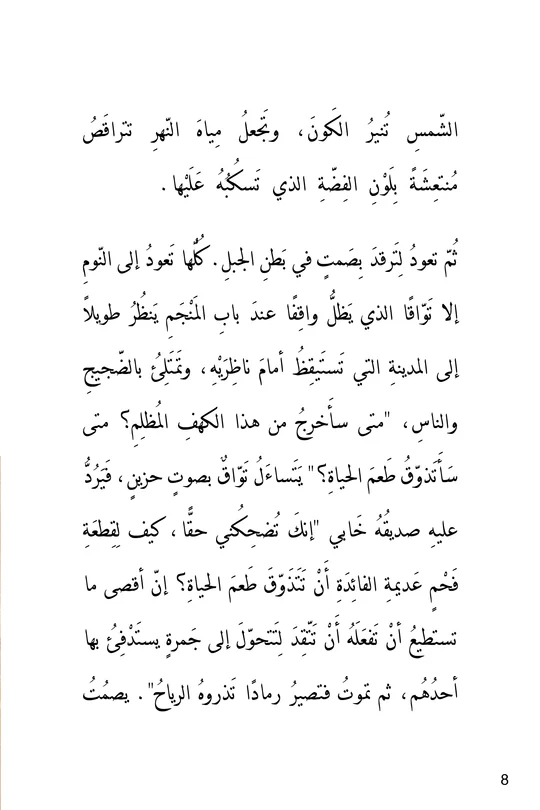 الشّمسِ تُنيرُ الكَونَ، وتَجعلُ مِياهَ النّهرِ تتراقَصُ
مُنتعِشَةً بِلَوْنِ الفِضّةِ الذي تَسكُبُهُ عَلَيْها.
ثُمّ تعودُ لِتَرقدَ بِصَمتٍ في بَطنِ الجبلِ. كُلُّها تَعودُ إلى النّومِ
إلا تَوّاقًا الذي يَظلُّ واقِفًا عندَ بابِ المَنْجَمِ يَنظُرُ طويلاً
إلى المدينةِ التي تَستَيقِظُ أمامَ ناظِرَيْهِ، وتَمتَلِئُ بالضّجيجِ
والناسِ، "متى سأَخرجُ من هذا الكهفِ المُظلِمِ؟ متى
سَأَتَذوّقُ طَعمَ الحياةِ؟" يَتَساءَلُ تَوّاقٌ بصوتٍ حزينٍ، فَيَرُدُّ
عليهِ صديقُهُ خَابي "إنكَ تُضحِكُني حقًّا، كيف لِقِطعَةِ
فَحْمٍ عَديمةِ الفائِدَةِ أَنْ تَتَذَوّقَ طَعمَ الحياةِ؟ إنّ أقصى ما
تستطيعُ أنْ تَفعَلَهُ أَنْ تَتّقِدَ لِتَتحوّلَ إلى جَمرةٍ يستَدْفِئُ بها
أحدُهُم، ثم تموتُ فتصيرُ رمادًا تَذروهُ الرياحُ". يصمُتُ
8